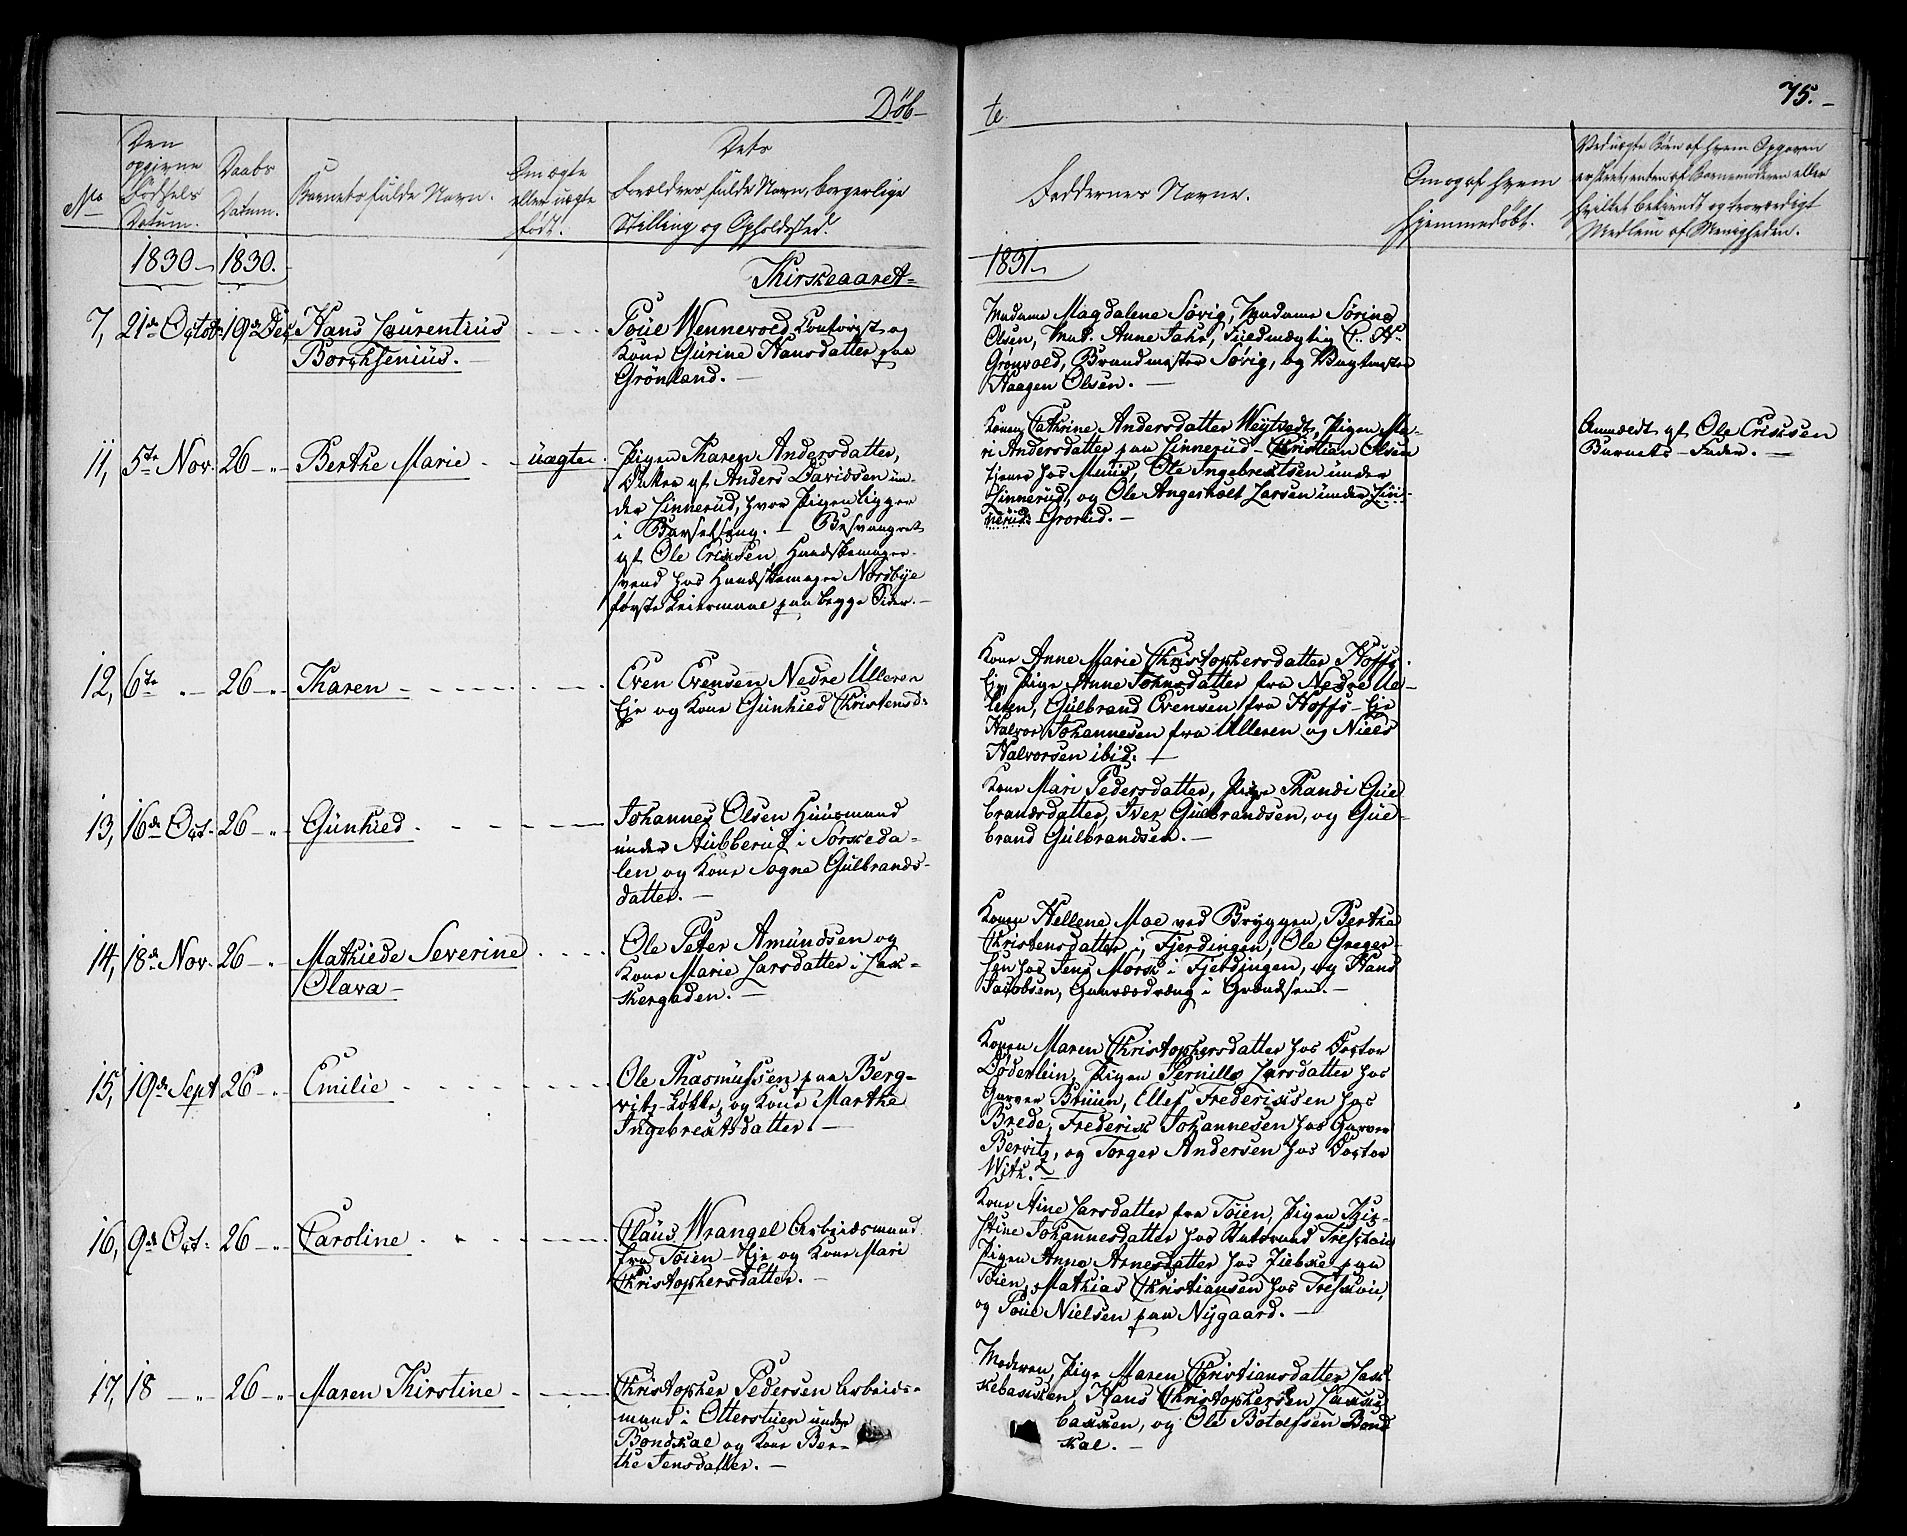 Döb-
te.
75.
No
Den
opgivne
Födsels
Datum.
Daabs
Datum.
Barnets fulde Navn.
Om ægte
eller uægte
født.
Dets
Forældres fulde Navn, borgerlige
Stilling og Opholdsted.
Faddernes Navne.
Om og af hvem
hjemmedøbt.
Ved uægte Børn af hvem Opgaven
er skeet, enten af Barnemoderen eller
hvilket bekjendt og troværdigt
Medlem af Menigheden.
1830 1830.
Kirkeaaret
1831
7, 21de Octob. 19de Dec. Hans Laurentius
Borchsenius.
Poūe Wennevold, Contorist og
Kone Gūrine Hansdatter paa
Grönland.
Madame Magdalene Sövig, Madame Sörine
Olsen, Mad. Anne Jahr, Fuldmægtig C. H.
Grønvold, Brandmester Sövig, og Vagtmester
Haagen Olsen.
11, 5te Nov. 26 Berthe Marie uægte
Pigen Karen Andersdatter,
Datter af Anders Davidsen un-
der Linnerūd, hvor Pigen ligger
i Barselseng. Besvangret
af Ole Ericksen Handskemager-
svend hos Handskemager Nordbye
første Leiermaal paa begge Sider.
Konen Cathrine Andersdatter Weytvedt, Pigen Ma-
ri Andersdatter paa Linnerūd, Christian Olsen
tjener hos Muus, Ole Ingebretsen under
Linnerud, og Ole Angesholt Larsen under Lin-
nerūd Grorud.
Anmeldt af Ole Ericksen
Barnets Fader.
12, 6te 26 Karen
Even Evensen Nedre Ulleren
Eje og Kone Gūnhild Christensd.
Kone Anne Marie Christophersdatter Hoffs
Eje, Pige Anne Johnsdatter fra Nedre Ul-
leren, Gūlbrand Evensen fra Hoffs-Eje
Halvor Johannesen fra Ulleren og Niels
Halvorsen ibid.
13, 16de Oct. 26 Gūnhild
Johannes Olsen Huusmand
under Stubberūd i Sørkeda-
len og Kone Sogne Gūlbrands-
datter.
Kone Mari Pedersdatter, Pige Randi Gul-
brandsdatter, Iver Gulbrandsen, og Gul-
brand Gūlbrandsen.
14, 18de Nov. 26 Mathilde Severine
Olava
Ole Peter Amūndsen og
Kone Marie Larsdatter i Lak-
kergaden.
Konen Hellene Moe ved Bryggen, Berthe
Christensdatter i Fjerdingen, Ole Greger-
sen hos Jens Morsk i Fjerdingen, og Hans
Jacobsen, Gaardsdreng i Grændsen.
15, 19de Sept. 26 Emilie
Ole Rasmūssen paa Berg-
vitz-Løkke, og Kone Marthe
Ingebretsdatter.
Konen Maren Christophersdatter hos Doctor
Døderlein, Pigen Pernille Larsdatter hos
Garver Bruun, Ellef Fredericksen hos
Brede, Frederick Johannesen hos Garver
Bervitz, og Torger Andersen hos Doctor
With.
16, 9de Oct. 26 Caroline
Claūs Wrangel Arbeidsmand
fra Töien Eje og Kone Mari
Christophersdatter.
Kone Aine Larsdatter fra Töien, Pigen Kir-
stine Johannesdatter hos Tresckow
Pigen Anne Arnesdatter hos paa
Töien, Mathias Christiansen hos Treskou,
og Poūe Nielsen paa Nygaard.
17, 18 26 Maren Kirstine
Christopher Pedersen Arbeids-
mand i Otterstuen under
Bondkal og Kone Ber-
the Jensdatter.
Moderen, Pige Maren Christiansdatter Lak-
kebakken, Hans Christophersen Lakke
bakken, og Ole Botolfsen Bond
kal.